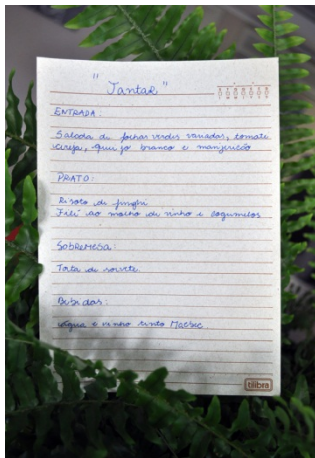 "Jantar"
ENTRADA:
Salada de folhas verdes variadas, tomate
cereja, queijo branco e manjericão
PRATO:
Risoto de funghi
Filé ao molho de vinho e cogumelos
SOBREMESA:
Torta de sorvete.
Bebidas:
água e vinho tinto Malbec.
tilibra